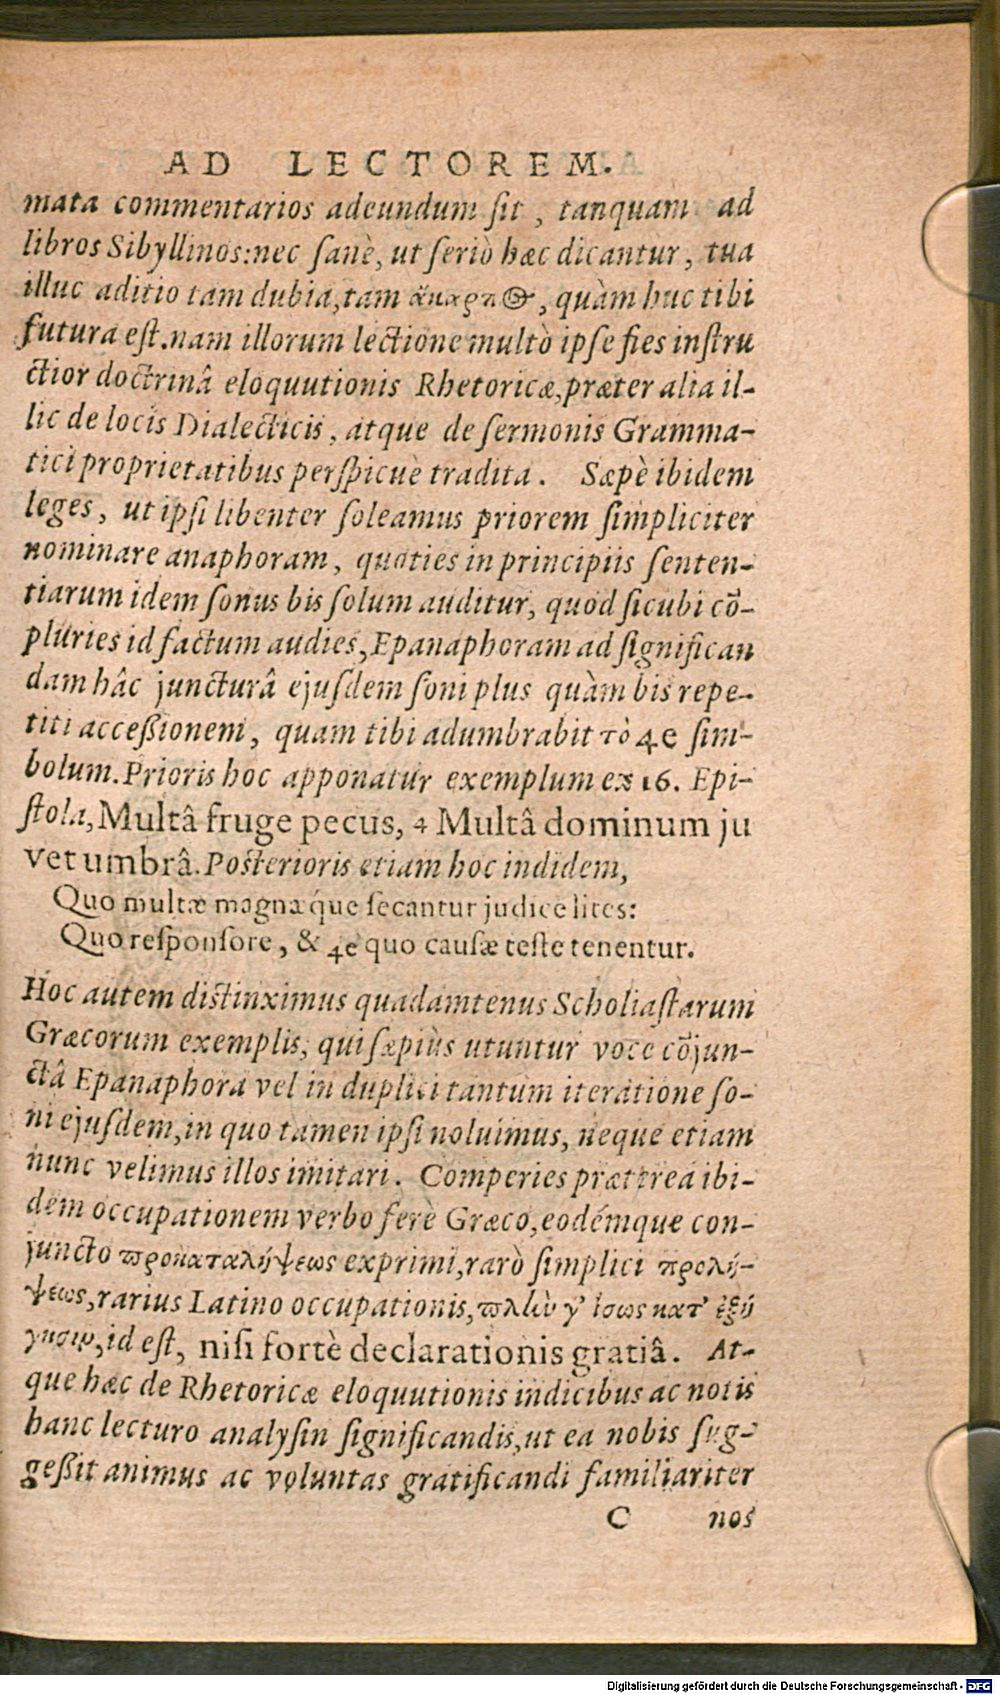 AD LECTOREM.
mata commentarios adeundum ſit, tanquam ad
libros Sibyllinos: nec ſanè, ut ſeriò hæc dicantur, tua
illuc aditio tam dubia, tam ἄκαρπος, quàm huc tibi
futura eſt. nam illorum lectione multò ipſe fies inſtru
ctior doctrinâ eloquutionis Rhetoricæ, præter alia il-
lic de locis Dialecticis, atque de ſermonis Gramma-
tici proprietatibus perſpicuè tradita. Sæpè ibidem
leges, ut ipſi libenter ſoleamus priorem ſimpliciter
nominare anaphoram, quoties in principiis ſenten-
tiarum idem ſonus bis ſolum auditur, quod ſicubi cõ-
pluries id factum audies, Epanaphoram ad ſignifican
dam hâc juncturâ ejuſdem ſoni plus quàm bis repe-
titi acceßionem, quam tibi adumbrabit τὸ 4e ſim-
bolum. Prioris hoc apponatur exemplum ex 16. Epi-
ſtola, Multâ fruge pecus, 4 Multâ dominum ju
vet umbrâ. Poſterioris etiam hoc indidem,
Quo multæ magnaque ſecantur judice lites:
Quo reſponſore, & 4e quo cauſæ teſte tenentur.
Hoc autem diſtinximus quadamtenus Scholiaſtarum
Græcorum exemplis, qui ſæpiùs utuntur voce cõjun-
ctâ Epanaphora vel in duplici tantùm iteratione ſo-
ni ejuſdem, in quo tamen ipſi noluimus, neque etiam
nunc velimus illos imitari. Comperies prætereà ibi-
dem occupationem verbo ferè Græco, eodémque con-
juncto προκαταλήψεως exprimi, rarò ſimplici προλή-
ψεως, rarius Latino occupationis, πλὴν γ' ἴσως κατ' ἐξή
γησιν, id eſt, niſi fortè declarationis gratiâ. At-
que hæc de Rhetoricæ eloquutionis indicibus ac notis
hanc lecturo analyſin ſignificandis, ut ea nobis ſug-
geßit animus ac voluntas gratificandi familiariter
C nos
Digitalisierung gefördert durch die Deutsche Forschungsgemeinschaft - DFG